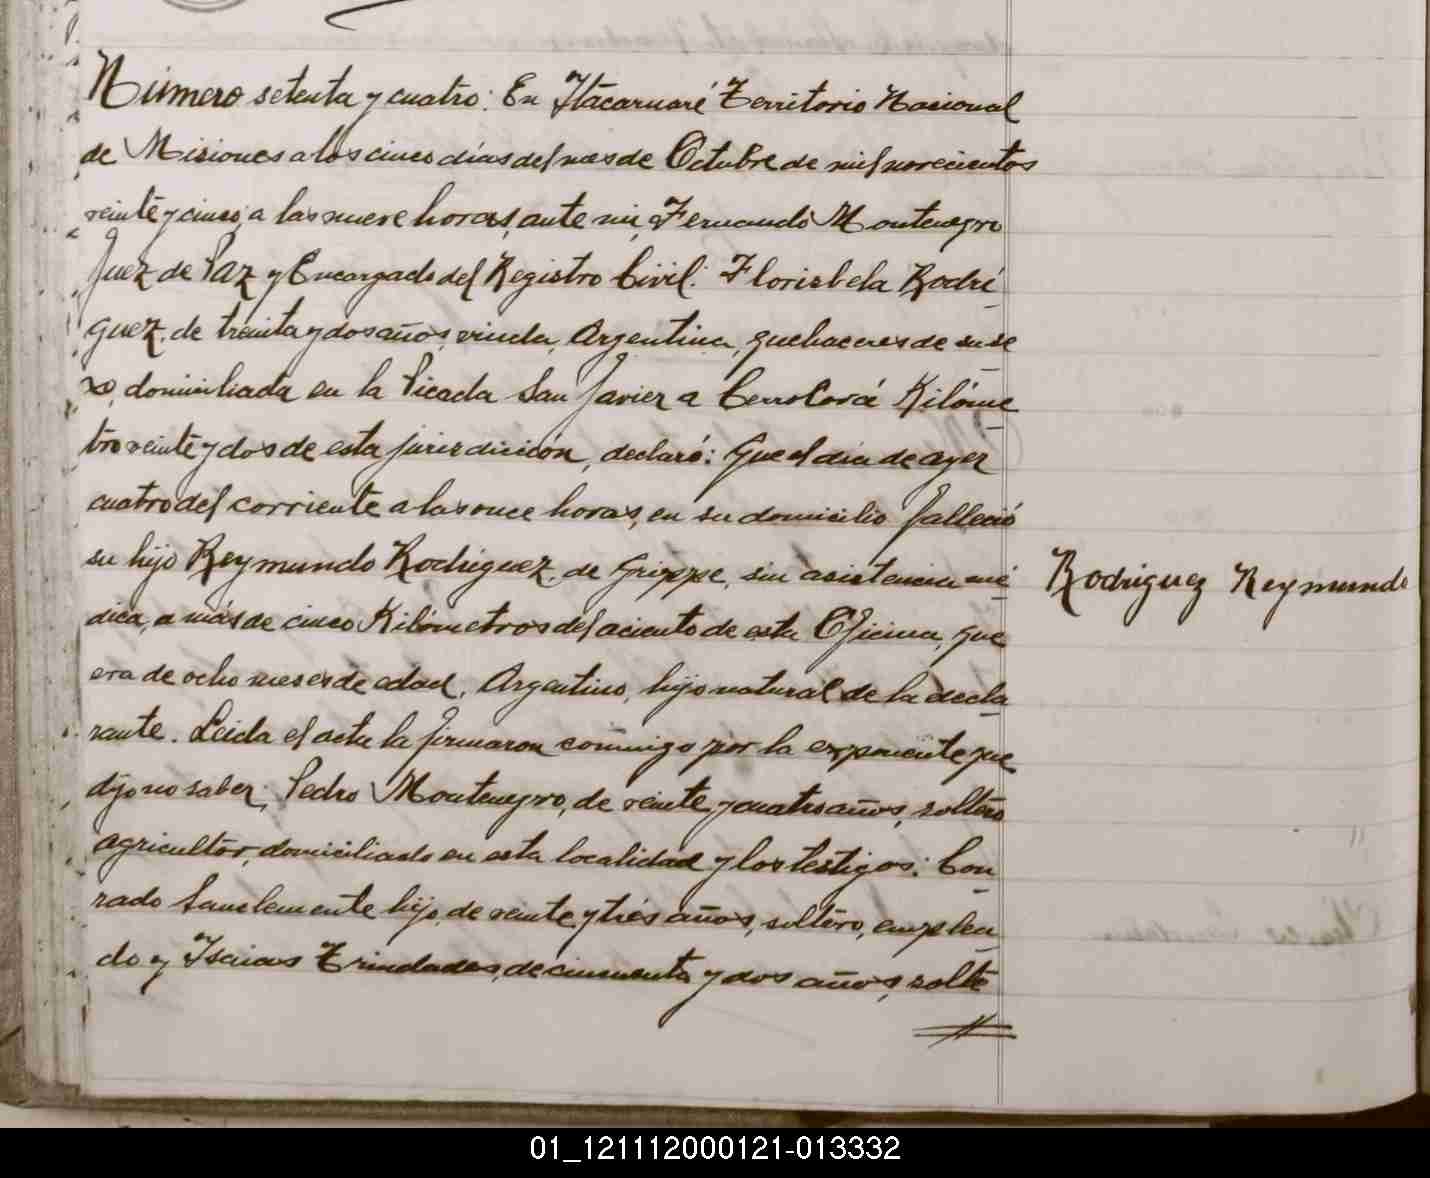 Número setenta y cuatro: En Itacaruaré Territorio Nacional
de Misiones a los cinco días del mes de Octubre de mil novecientos
veinte y cinco, a las nueve horas, ante mi, Fernando Montenegro
Juez de Paz y Encargado del Registro Civil: Florisbela Rodrí
guez, de treinta y dos años, viuda, Argentina, quehaceres de su se
xo, domiciliada en la Picada San Javier a Cerro Corá Kilóme
tro veinte y dos de esta jurisdicción, declaró: Que el día de ayer
cuatro del corriente a las once horas, en su domicilio falleció
su hijo Reymundo Rodriguez, de Grippe, sin asistencia mé
dica, a más de cinco Kilómetros del aciento de esta Oficina, que
era de ocho meses de edad, Argentino, hijo natural de la decla
Rodriguez Reymundo
rante. Leida el acta la firmaron conmigo por la exponente que
dijo no saber, Pedro Montenegro, de veinte y cuatro años, soltero
agricultor, domiciliado en esta localidad y los testigos: Con
rado Sanclemente hijo, de veinte y tres años, soltero, emplea
do y Isaias Trindades, de cincuenta y dos años, solte
01_121112000121-013332